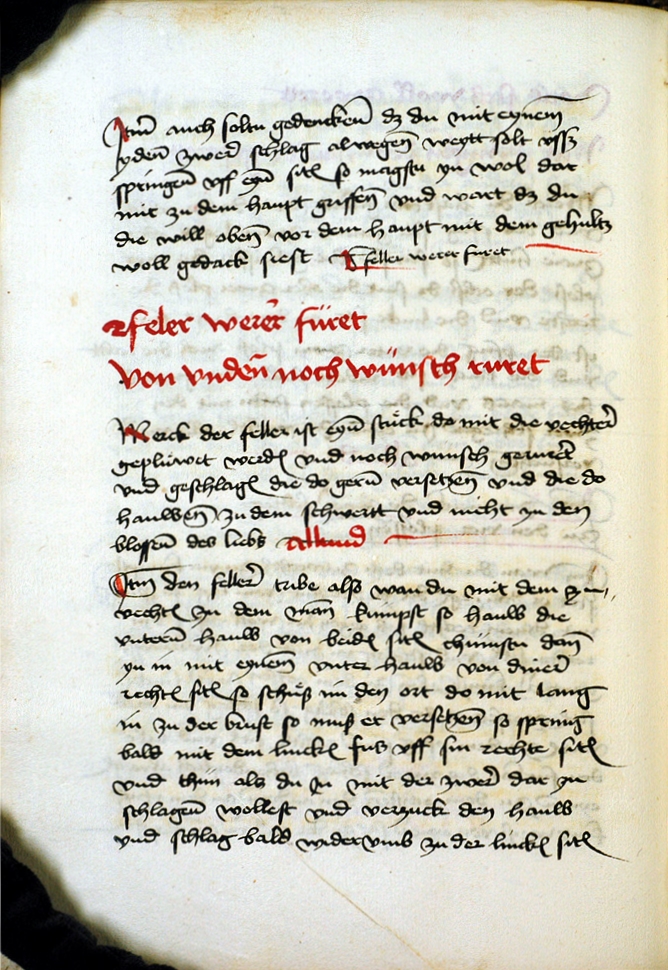 Itm̄ auch soltu gedenckeñ dz du mit eynem̄
ydeñ zwer̃ schlag alwegeñ weytt solt vß
springeñ vff eyñ sitt so magstu yn wol dar
mit zu dem haupt griffeñ vnd wart dz du
die will obeñ vor dem haupt mit dem gehultz
woll gedack siest Feller werer furet
Feler werer̃ füret
von vndeñ noch wünsch ruret
Merck der feller ist eyñ stuck do mit die vechter̃
geplüwet werdē vnd noch wunsch gerurett
vnd geschlagē die do gerñ verseczeñ vnd die do
hauwseñ zu dem schwertt vnd nicht zu den
blosseñ des liebs Alluud
Itm̄ den feller̃ tribe alß wan du mit dem zu
vechtē zu dem man kumpst so hauw die
vnterñ hauw von beidē sitē chumstu dañ
yn in mit eyneñ vnter hauw von diner̃
rechtē sitē so schüß im den ort do mit lang
in zu der brust so muß er verseczeñ so spring
bald mit dem linckē fus vff sin rechte sitē
vnd thün als du in mit der zwer̃ dar zu
schlageñ wollest vnd verzuck den hauw
vnd schlag bald widervmb zu der linckē sitē